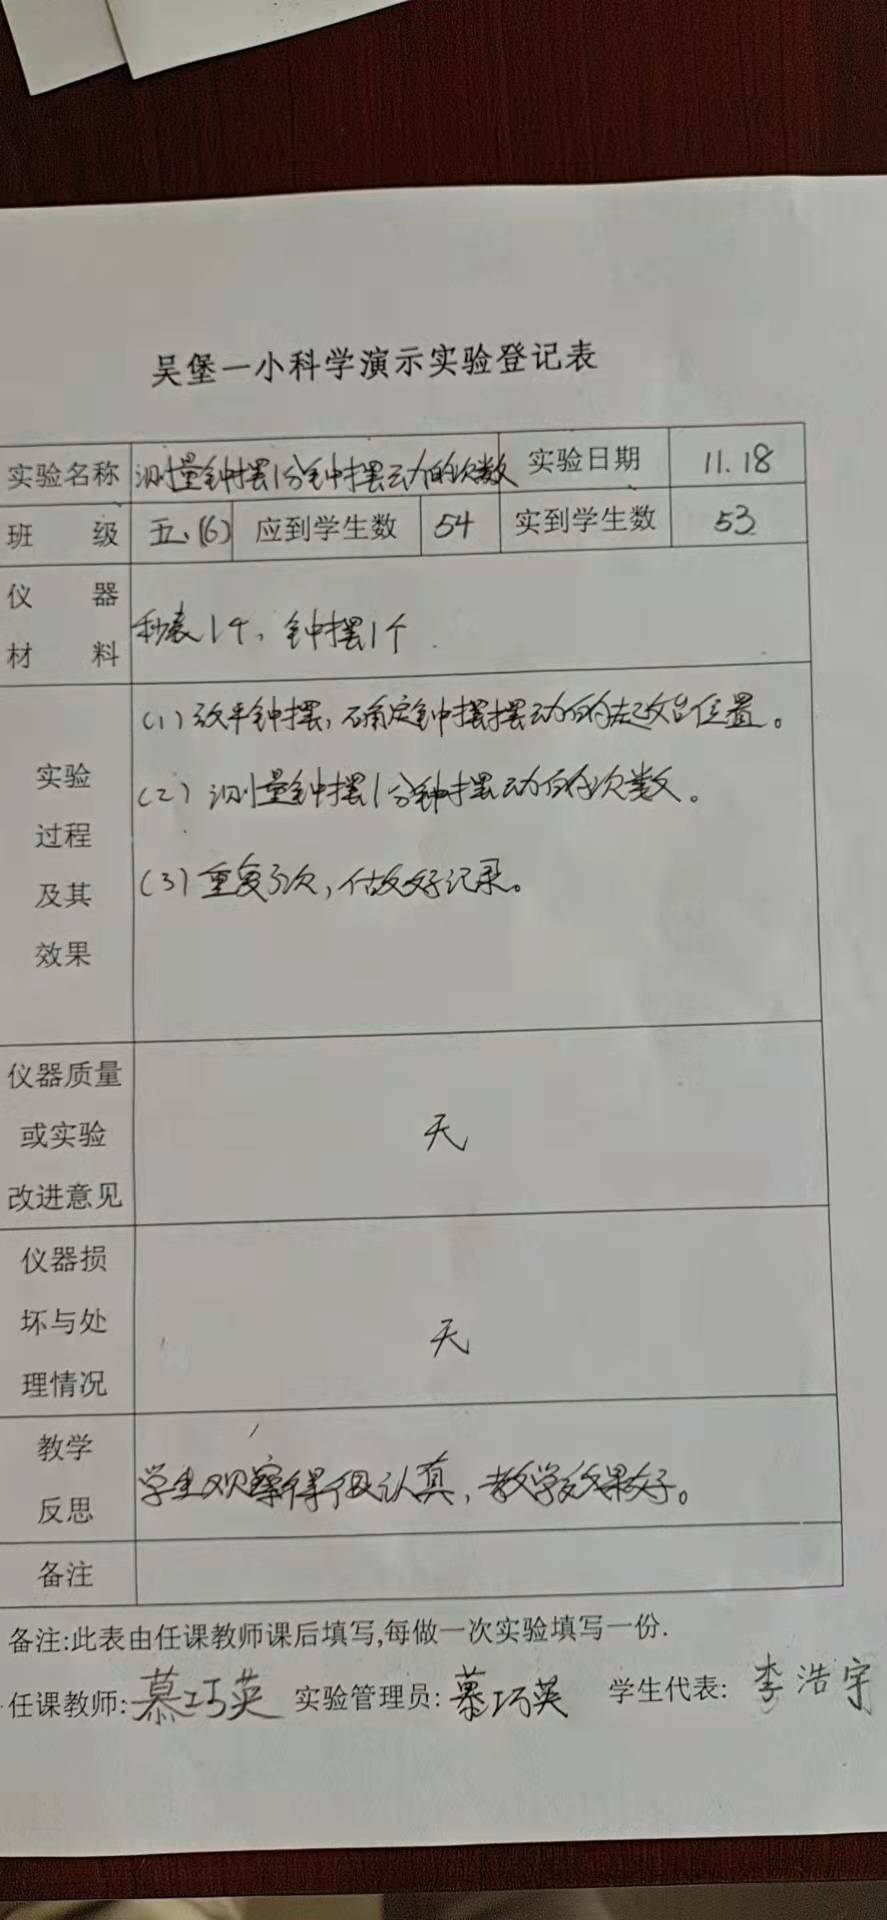 吴堡一小科学演示实验登记表
实验名称 测量钟摆1分钟摆动的次数 实验日期 11.18
班 级 五.(6) 应到学生数 54 实到学生数 53
仪 器
材 料
秒表1个、钟摆1个.
实验
过程
及其
效果
(1)放平钟摆,确定钟摆摆动的起始位置。
(2)测量钟摆1分钟摆动的次数。
(3)重复3次,做好记录。
仪器质量
或实验
改进意见
无
仪器损
坏与处
理情况
无
教学
反思
学生观察得很认真,教学效果好。
备注
备注:此表由任课教师课后填写,每做一次实验填写一份.
任课教师:慕巧英 实验管理员:慕巧英 学生代表:李浩宇